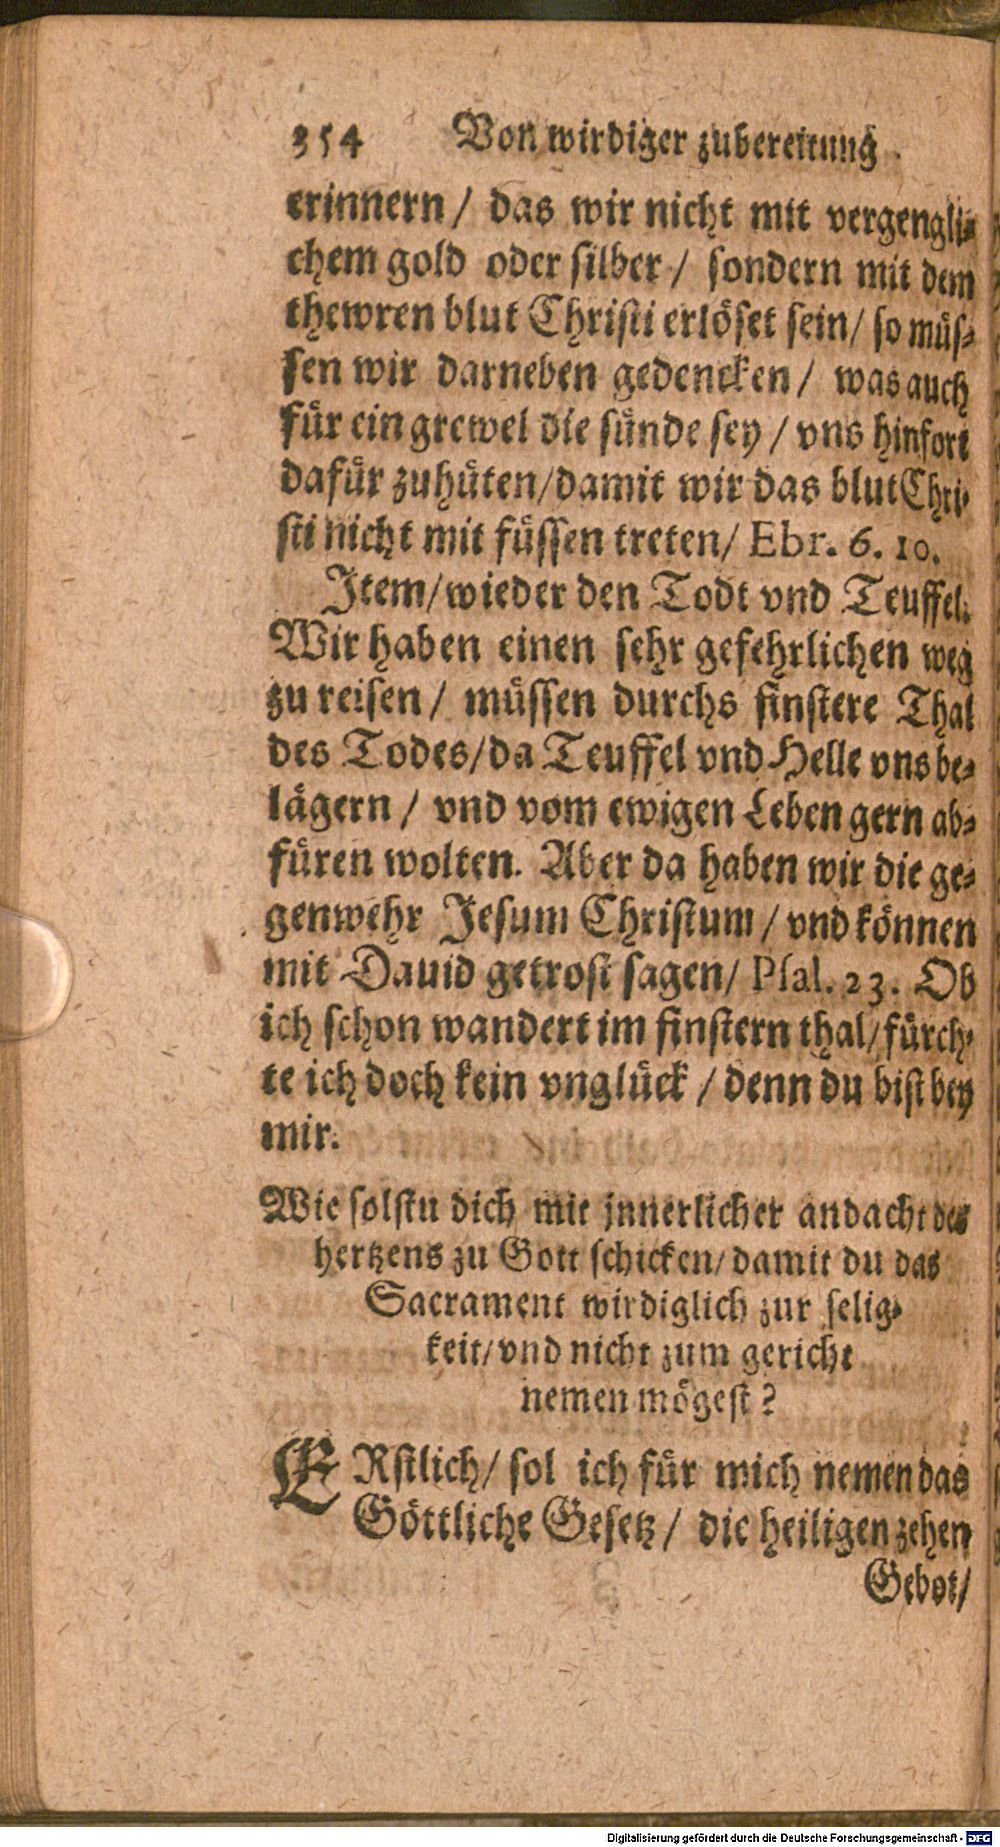 354 Von wirdiger zubereitung
erinnern / das wir nicht mit vergengli⸗
chem gold oder silber / sondern mit dem
thewren blut Christi erlöset sein / so müs⸗
sen wir darneben gedencken / was auch
für ein grewel die sünde sey / vns hinfort
dafür zuhüten / damit wir das blut Chri⸗
sti nicht mit füssen treten / Ebr. 6. 10.
Item / wieder den Todt vnd Teuffel.
Wir haben einen sehr gefehrlichen weg
zu reisen / müssen durchs finstere Thal
des Todes / da Teuffel vnd Helle vns be⸗
lägern / vnd vom ewigen Leben gern ab⸗
füren wolten. Aber da haben wir die ge⸗
genwehr Jesum Christum / vnd können
mit Dauid getrost sagen / Psal. 23. Ob
ich schon wandert im finstern thal / fürch⸗
te ich doch kein vnglück / denn du bist bey
mir.
Wie solstu dich mit jnnerlicher andacht des
hertzens zu Gott schicken / damit du das
Sacrament wirdiglich zur selig⸗
keit / vnd nicht zum gericht
nemen mögest?
ERstlich / sol ich für mich nemen das
Göttliche Gesetz / die heiligen zehen
Gebot /
Digitalisierung gefördert durch die Deutsche Forschungsgemeinschaft - DFG